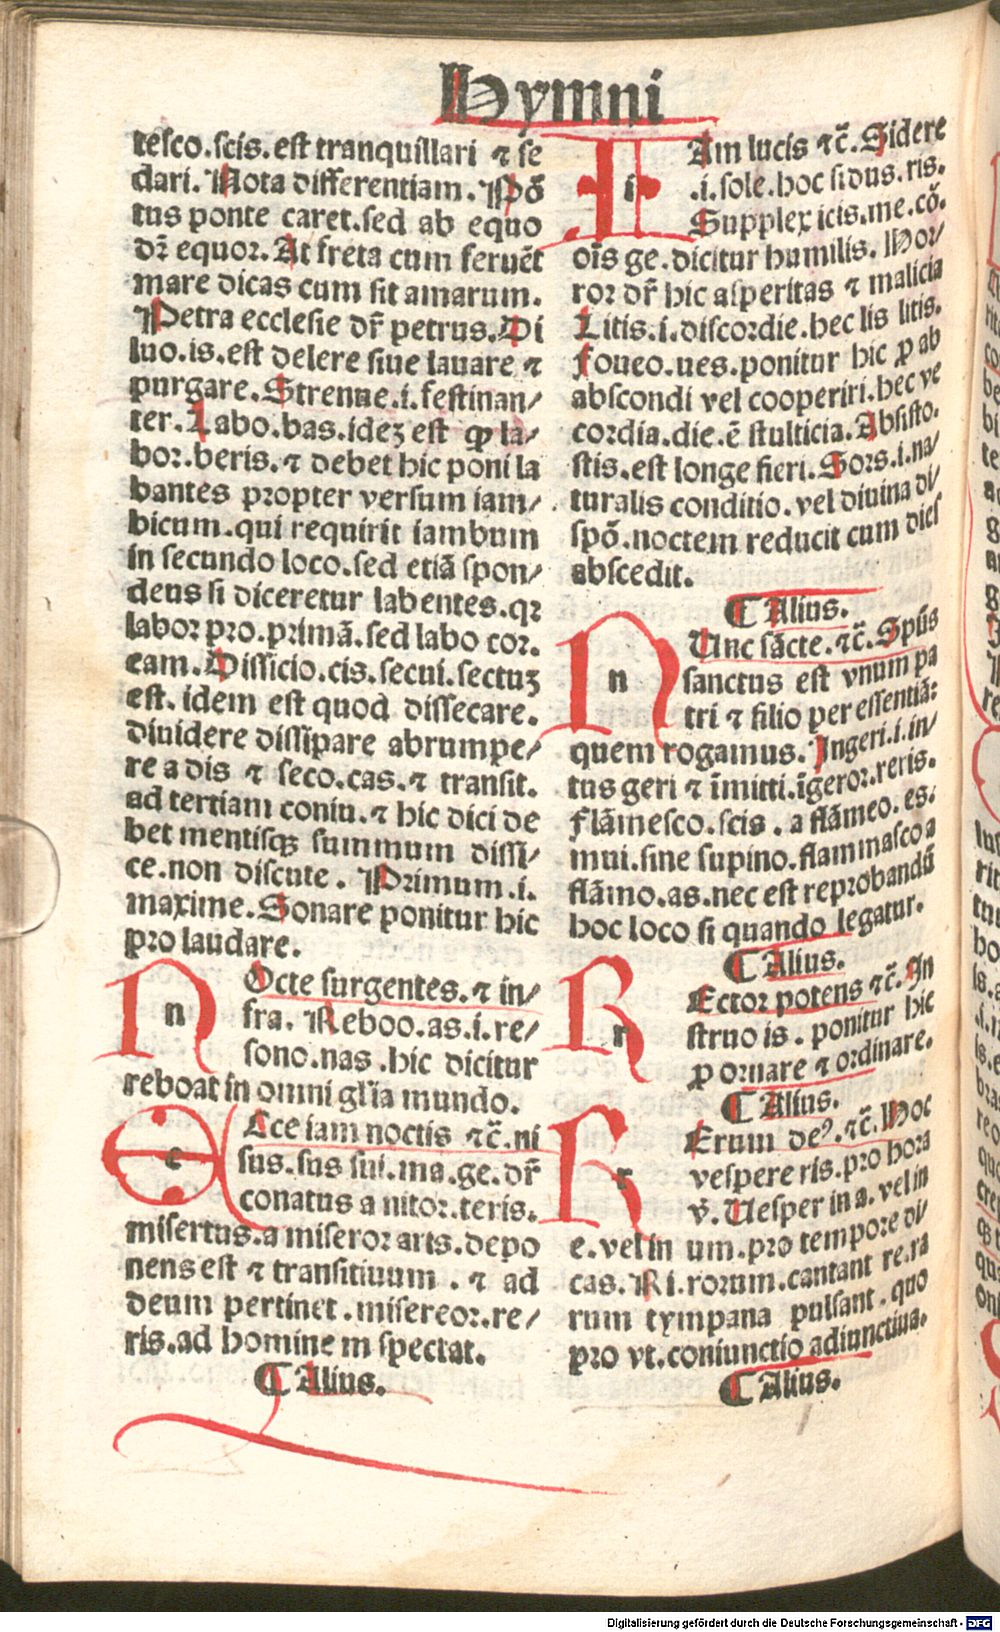 Hymni
tesco.scis.est tranquillari ⁊ se
dari. Nota differentiam. Põ
tus ponte caret.sed ab equo
dꝛ̄ equor. At freta cum feruēt
mare dicas cum sit amarum.
Petra ecclesie dr̄ petrus. Di
luo.is.est delere siue lauare ⁊
purgare. Strenue.i.festinan/
ter. Labo.bas.ideꝫ est qđ la/
bor.beris.⁊ debet hic poni la
bantes propter versum iam/
bicum.qui requirit iambum
in secundo loco.sed etiā spon/
deus si diceretur labentes.qꝛ
labor pro.primā.sed labo cor.
eam. Dissicio.cis.secui.sectuꝫ
est. idem est quod dissecare.
diuidere dissipare abrumpe/
re a dis ⁊ seco.cas.⁊ transit.
ad tertiam coniu.⁊ hic dici de
bet mentisqꝫ summum dissi/
ce.non discute. Primum.i.
maxime. Sonare ponitur hic
pro laudare.
n Octe surgentes.⁊ in/
fra. Reboo.as.i.re/
sono.nas.hic dicitur
reboat in omni gl̄ia mundo.
e Cce iam noctis ⁊c̄.ni
sus.sus sui.ma.ge.dr̄
conatus a nitor.teris.
misertus.a miseror aris.depo
nens est ⁊ transitiuum . ⁊ ad
deum pertinet.misereor.re/
ris.ad homine m spectat.
¶ Alius.
i Am lucis ⁊c̄. Sidere
.i.sole.hoc sidus.ris.
Supplex icis.me.cō.
oīs ge.dicitur humilis. Hor/
ror dr̄ hic asperitas ⁊ malicia
Litis.i.discordie.hec lis litis.
foueo.ues.ponitur hic ꝓ ab
abscondi vel cooperiri.hec ve
cordia.die.ē stulticia. Absisto.
stis.est longe fieri. Sors.i.na/
turalis conditio.vel diuina di/
spō.noctem reducit cum dies
abscedit.
¶ Alius.
n Unc sācte.⁊c̄. Spūs
sanctus est vnum pa
tri ⁊ filio per essentiā:
quem rogamus. Ingeri.i.in/
tus geri ⁊ īmitti.īgeror.reris.
flāmesco.scis. a flāmeo.es.
mui.sine supino.flammasco a
flāmo.as.nec est reprobandū
hoc loco si quando legatur.
¶ Alius.
r Ector potens ⁊c̄. In
struo is. ponitur hic
ꝓ ornare ⁊ ordinare.
¶ Alius.
r Erum deꝰ.⁊c̄. Hoc
vespere ris.pro hora
v̄. Uesper in a.vel in
e.vel in um.pro tempore di/
cas. Ri.rorum.cantant re.ra
rum tympana pulsant.quo
pro vt.coniunctio adiunctiua.
¶ Alius.
Digitalisierung gefördert durch die Deutsche Forschungsgemeinschaft - DFG